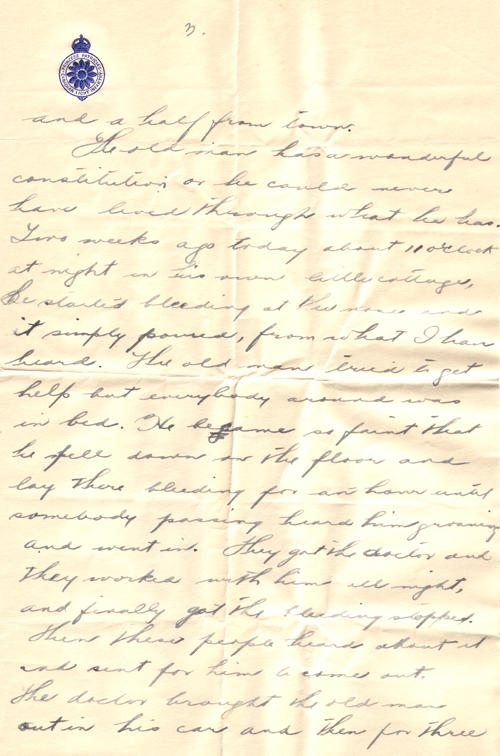 3.
and a half from town.
The old man has a wonderful
constitution or he could never
have lived through what he has.
Two weeks ago today about 11 o'clock
at night in his own little cottage,
he started bleeding at the nose and
it simply poured, from what I have
heard. The old man tried to get
help but everybody around was
in bed. He became so faint that
he fell down on the floor and
lay there bleeding for an hour until
somebody passing heard him groaning
and went in. They got the doctor and
they worked with him all night,
and finally got the bleeding stopped.
Then these people heard about it
and sent for him to come out.
The doctor brought the old man
out in his car and then for three